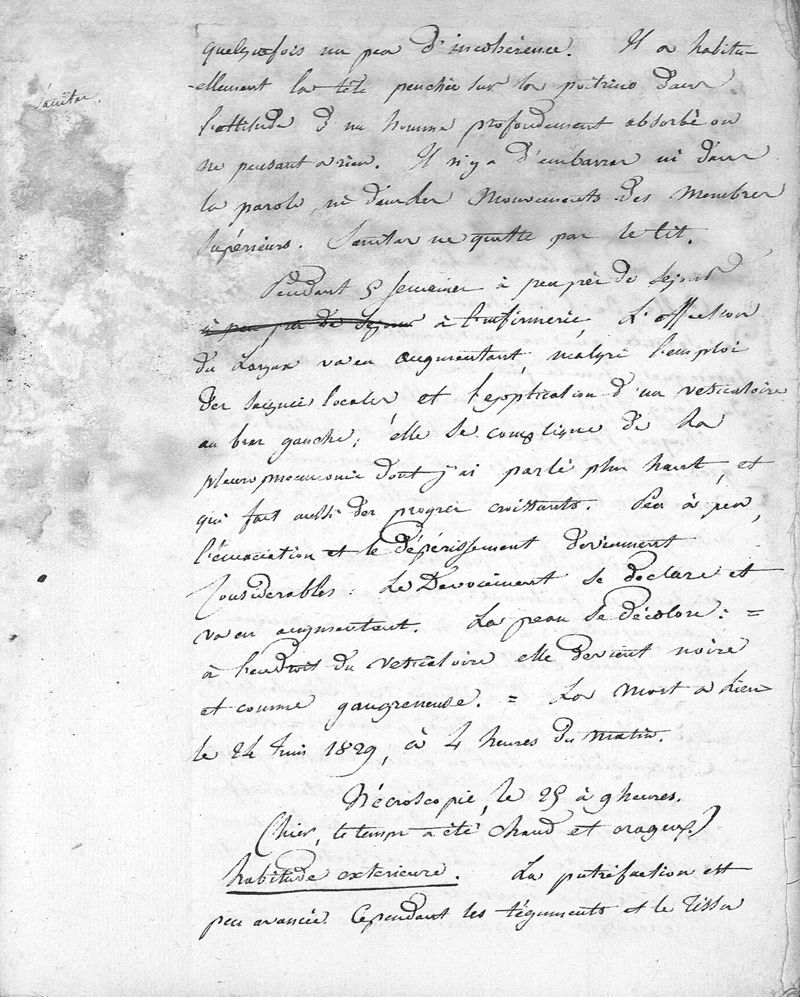 Sanitas.
quelquefois un peu d'incohérence. Il a habitu-
-ellement la tête penchée sur la poitrine dans
l'attitude d'un homme profondément absorbé ou
ne pensant a rien. Il n'y a d'embarras ni dans
la parole, ni dans les mouvements des membres
supérieurs. Sanitas ne quitte pas le lit.
Pendant 5 semaines à peu près de séjour
à peu près de séjour à l'infirmerie, L'affection
du Larynx va en augmentant, malgré l'emploi
des saignées locales et l'application d'un vésicatoire
au bras gauche; elle se complique de la
pleuropneumonie dont j'ai parlé plus haut, et
qui fait aussi des progrès croissants. Peu à peu,
l'émaciation et le dépérissement deviennent
Considérables: Le Dévoiement se déclare et
va en augmentant. La peau se décolore: =
à l'endroit du vésicatoire elle devient noire
et comme gangreneuse. = La mort a lieu
le 24 Juin 1829, à 4 heures du matin.
Nécroscopie, le 25 à 9 heures.
(hier, le temps a été chaud et orageux)
habitude extérieure. La putréfaction est
peu avancée. Cependant les téguments et le tissu